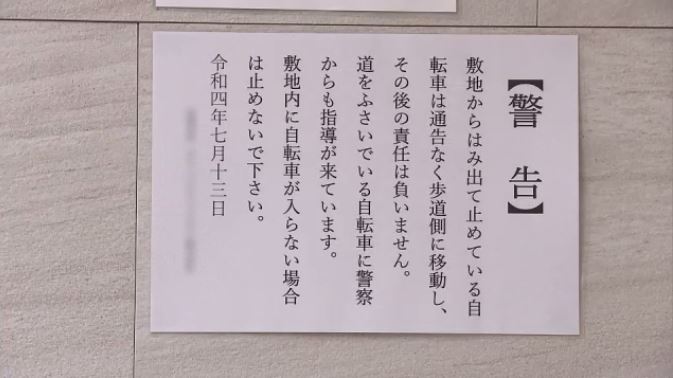 【警告】
敷地からはみ出て止めている自
転車は通告なく歩道側に移動し、
その後の責任は負いません。
道をふさいでいる自転車に警察
からも指導が来ています。
敷地内に自転車が入らない場合
は止めないで下さい。
令和四年七月十三日